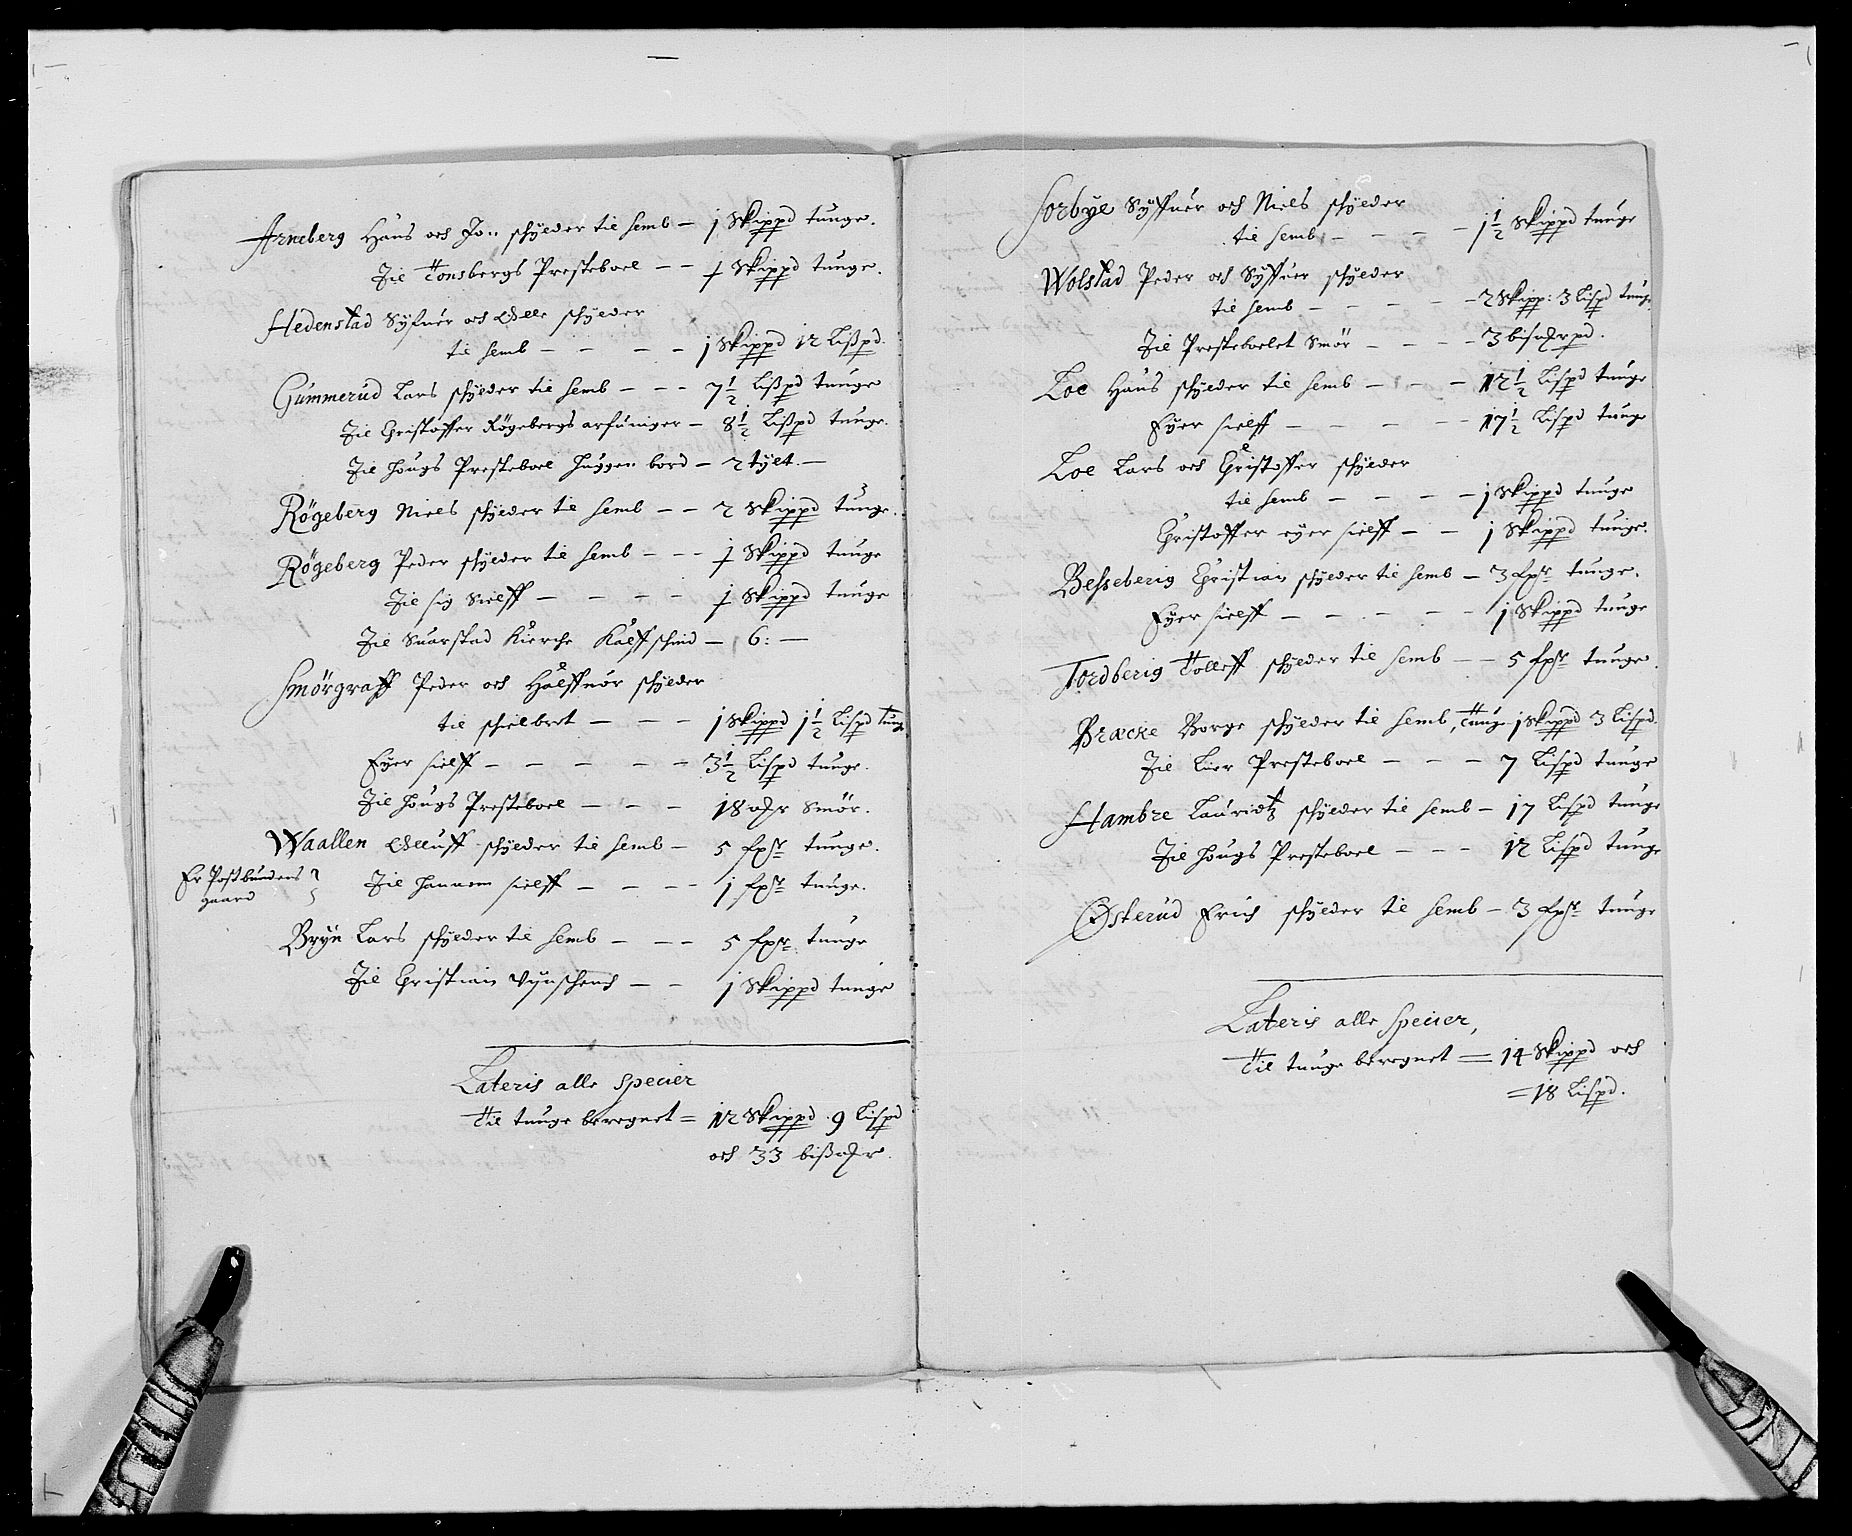 Arneberg Hans och Jon schylder til Semb – 1 Skippd tunge.
Til Tonsbergs Presteboel – – 1 Skippd tunge.
Hedenstad Syfuer och Elle schylder
til Semb – – – – 1 Skippd 12 Lißpd.
Gummerud Lars schylder til Semb – – – 7½ Lißpd tunge
Til Christoffer Rögebergs arfuinger – 8½ Lißpd tunge.
Til Hougs Presteboel huggen bord – 2 tylt. –
Rögeberg Niels schylder til Semb – – 2 Skippd tunge.
Rögeberg Peder schylder til Semb – – – 1 Skippd tunge
Til sig Sielff – – – – 1 Skippd tunge
Til Suarstad Kierche Kalffschind – 6: –
Smörgraff Peder och Halffuor schylder
til schielbret – – – 1 Skippd 1½ Lispd tunge
Eyer sielff – – – – – 3½ Lispd tunge.
Til Hougs Presteboel – – – 18 mr Smör.
Waallen Elluff schylder til Semb – 5 fxr tunge.
Er Postbundens
gaard
Til hannem sielff – – – – 1 fxr tunge.
Bryn Lars schylder til Semb – – – 5 fxr tunge
Til Christian – – 1 Skippd tunge
Lateris alle Specier
Til tunge beregnet = 12 Skippd 9 Lispd
och 33 bißmr.
Sorbye Syffuer och Niels schylder
til Semb – – – – 1½ Skippd tunge
Wolstad Peder och Syffuer schylder
til Semb – – – – – 2 Skipp: 3 Lispd tunge
Til Presteboelet Smör – – – – 3 bismrpd.
Loe Hans schylder til Semb – – – 12½ Lispd tunge
Eyer sielff – – – – – 17½ Lispd tunge
Loe Lars och Christoffer schylder
til Semb – – – – 1 Skippd tunge
Christoffer eyer sielff – – 1 Skippd tunge.
Besseberig Christian schylder til Semb – 3 fxr tunge.
Eyer sielff – – – – – 1 Skippd tunge
Tordberig Tolleff schylder til Semb – – 5 fxr tunge.
Bræcke Borge schylder til Semb, Tunge 1 Skippd 3 Lispd.
Til Lier Presteboel – – – – 7 Lispd tunge
Hambre Lauridtz schylder til Semb – 17 Lispd tunge
Til Hougs Presteboel – – – 12 Lispd tunge
Østerud Erich schylder til Semb – 3 fxr tunge
Lateris alle Specier,
Til tunge beregnet = 14 Skippd och
= 18 Lispd.